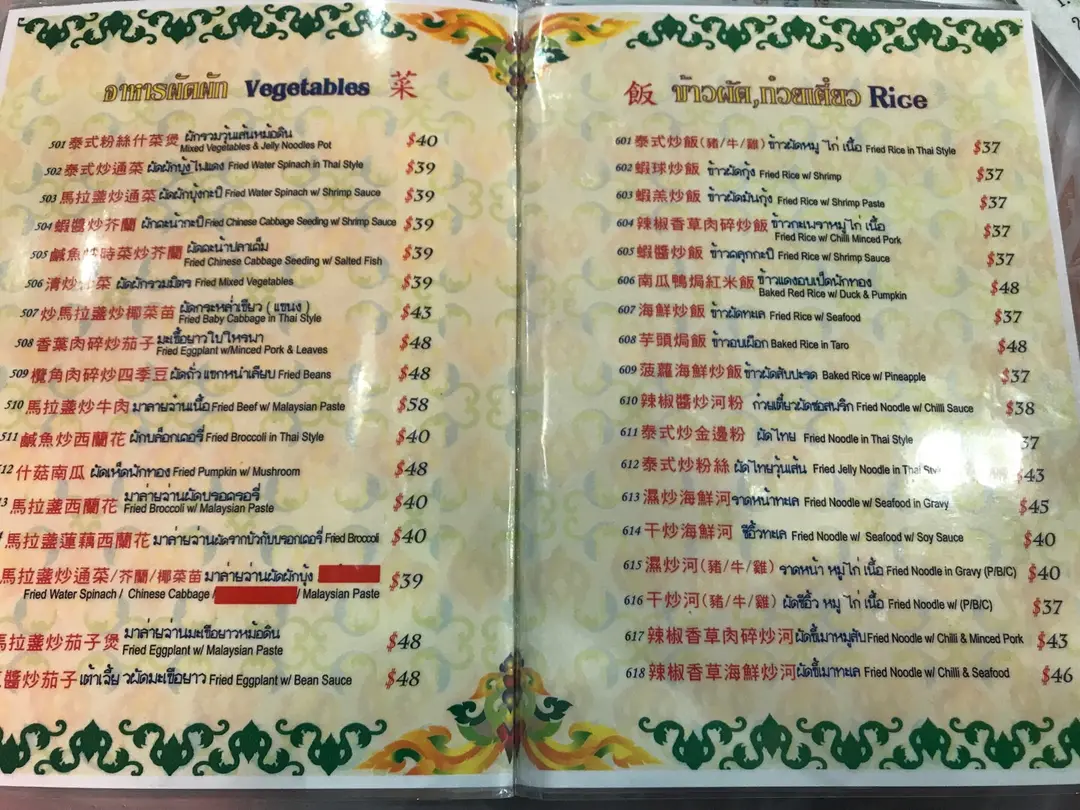 อาหารผัดผัก Vegetables 菜
501 泰式粉絲什菜煲 ผักรวมวุ้นเส้นหม้อดิน $40
Mixed Vegetables & Jelly Noodles Pot
502 泰式炒通菜 ผัดผักบุ้งไฟแดง Fried Water Spinach in Thai Style $39
503 馬拉盞炒通菜 ผัดผักบุ้งกะปิ Fried Water Spinach w/ Shrimp Sauce $39
504 蝦醬炒芥蘭 ผักคะน้ากะปิ Fried Chinese Cabbage Seeding w/ Shrimp Sauce $39
505 鹹魚 時菜炒芥蘭 ผัดคะน้าปลาเค็ม $39
Fried Chinese Cabbage Seeding w/ Salted Fish
506 清炒 菜 ผัดผักรวมมิตร Fried Mixed Vegetables $39
507 炒馬拉盞炒椰菜苗 ผัดกระหล่ำเขียว ( แขนง ) $43
Fried Baby Cabbage in Thai Style
508 香葉肉碎炒茄子 มะเขือยาวใบโหรพา $48
Fried Eggplant w/Minced Pork & Leaves
509 欖角肉碎炒四季豆 ผัดถั่วแขกหนำเลียบ Fried Beans $48
510 馬拉盞炒牛肉 มาลายจ่านเนื้อ Fried Beef w/ Malaysian Paste $58
511 鹹魚炒西蘭花 ผักบล็อกเคอรี่ Fried Broccoli in Thai Style $40
12 什菇南瓜 ผัดเห็ดฟักทอง Fried Pumpkin w/ Mushroom $48
3 馬拉盞西蘭花 มาล่ายจ่านผัดบรอคครอรี่ $40
Fried Broccoli w/ Malaysian Paste
馬拉盞蓮藕西蘭花 มาล่ายจ่านผัดรากบัวกับบรอกเคอรี่ Fried Broccoli $40
馬拉盞炒通菜/芥蘭/椰菜苗 มาล่ายจ่านผัดผักบุ้ง $39
Fried Water Spinach / Chinese Cabbage / / Malaysian Paste
馬拉盞炒茄子煲 มาล่ายจ่านมะเขือยาวหม้อดิน $48
Fried Eggplant w/ Malaysian Paste
醬炒茄子 เต้าเจี้ยวผัดมะเขือยาว Fried Eggplant w/ Bean Sauce $48
飯 ข้าวผัด,ก๋วยเตี๋ยว Rice
601 泰式炒飯(豬/牛/雞) ข้าวผัดหมู ไก่ เนื้อ Fried Rice in Thai Style $37
602 蝦球炒飯 ข้าวผัดกุ้ง Fried Rice w/ Shrimp $37
603 蝦羔炒飯 ข้าวผัดมันกุ้ง Fried Rice w/ Shrimp Paste $37
604 辣椒香草肉碎炒飯 ข้าวกะเพราหมู ไก่ เนื้อ $37
Fried Rice w/ Chilli Minced Pork
605 蝦醬炒飯 ข้าวคลุกกะปิ Fried Rice w/ Shrimp Sauce $37
606 南瓜鴨焗紅米飯 ข้าวแดงอบเป็ดฟักทอง $48
Baked Red Rice w/ Duck & Pumpkin
607 海鮮炒飯 ข้าวผัดทะเล Fried Rice w/ Seafood $37
608 芋頭焗飯 ข้าวอบเผือก Baked Rice in Taro $48
609 菠蘿海鮮炒飯 ข้าวผัดสับปะรด Baked Rice w/ Pineapple $37
610 辣椒醬炒河粉 ก๋วยเตี๋ยวผัดซอสพริก Fried Noodle w/ Chilli Sauce $38
611 泰式炒金邊粉 ผัดไทย Fried Noodle in Thai Style 37
612 泰式炒粉絲 ผัดไทยวุ้นเส้น Fried Jelly Noodle in Thai $43
613 濕炒海鮮河 ราดหน้าทะเล Fried Noodle w/ Seafood in Gravy $45
614 干炒海鮮河 ซีอิ้วทะเล Fried Noodle w/ Seafood w/ Soy Sauce $40
615 濕炒河(豬/牛/雞) ราดหน้า หมู ไก่ เนื้อ Fried Noodle in Gravy (P/B/C) $40
616 干炒河(豬/牛/雞) ผัดซีอิ้ว หมู ไก่ เนื้อ Fried Noodle w/ (P/B/C) $37
617 辣椒香草肉碎炒河 ผัดขี้เมาหมูสับ Fried Noodle w/ Chilli & Minced Pork $43
618 辣椒香草海鮮炒河 ผัดขี้เมาทะเล Fried Noodle w/ Chilli & Seafood $46